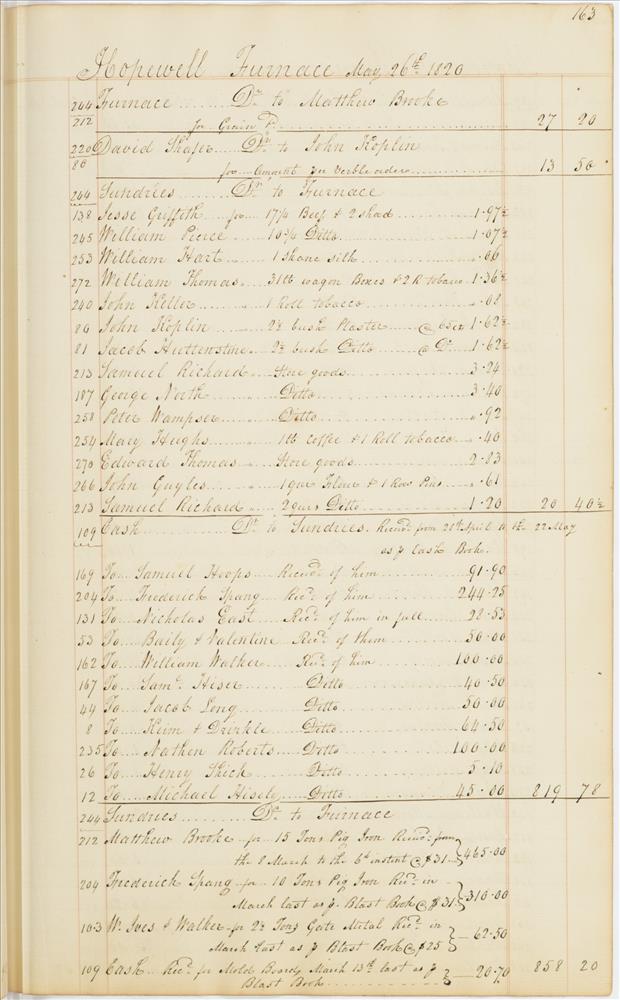 163
Hopewell Furnace May 26th 1820
244 Furnace ........ Dr to Matthew Brooke
212 for Grain &c ........ 27 20
220 David Shafer ..... Dr to John Koplin
80 for amount per Verble order ........ 13 50
244 Sundries ........ Dr to Furnace
138 Jesse Griffith .... for .... 17¼ Beef & 2 shad ........ 1.97½
245 William Pierce .... 10¾ Ditto ........ 1.07½
253 William Hart .... 1 skane silk ........ .06
272 William Thomas .... 31lb wagon Boxes & 2 R tobacco 1.36½
240 John Keller .... 1 Roll tobacco ........ .08
80 John Koplin .... 2½ bush Plaster .... @ 65cts 1.62½
81 Jacob Huttenstine .. 2½ bush Ditto .... @ Do 1.62½
213 Samuel Richard .. Store goods ........ 3.24
187 George North .... Ditto ........ 3.40
258 Peter Wampser .... Ditto ........ .92
254 Mary Hughs .... 1lb Coffee & 1 Roll tobacco .40
270 Edward Thomas .. Store goods ........ 2.83
266 John Guyles .... 1 qur Flour & 1 Row Pins .. .61
213 Samuel Richard .... 2 qurs Ditto ........ 1.20 20 40½
109 Cash ........ Dr to Sundries. Recived from 20th April to the 22 May
as pr Cash Book.
169 To .... Samuell Hoops .... Recived of him ........ 91.90
204 To .... Frederick Spang .. Recd of him ........ 244.25
131 To .... Nicholas East .... Recd of him in full ........ 22.53
53 To .... Baily & Valentine Recd of them ........ 56.00
162 To .... William Walker .... Recd of him ........ 100.00
167 To .... Saml Hiser ........ Ditto ........ 40.50
44 To .... Jacob Long ........ Ditto ........ 50.00
8 To .... Keim & Drinkle .... Ditto ........ 64.50
235 To .... Nathen Roberts .... Ditto ........ 100.00
26 To .... Henry Shick ........ Ditto ........ 5.10
12 To .... Michael Hisely .... Ditto ........ 45.00 819 78
244 Sundries ........ Dr to Furnace
212 Matthew Brooke for 15 Tons Pig Iron Recived from
the 8 March to the 6th instant @ $31 .. 465.00
204 Frederick Spang for 10 Tons Pig Iron Recd in
March last as pr. Blast Book @ $31 310.00
103 Wm Ives & Walker for 2½ Tons Gate Metal Recd in
March last as pr Blast Book @ $25 62.50
109 Cash .. Recd for Mold Boards March 13th last as pr
Blast Book ........ 20.70 858 20